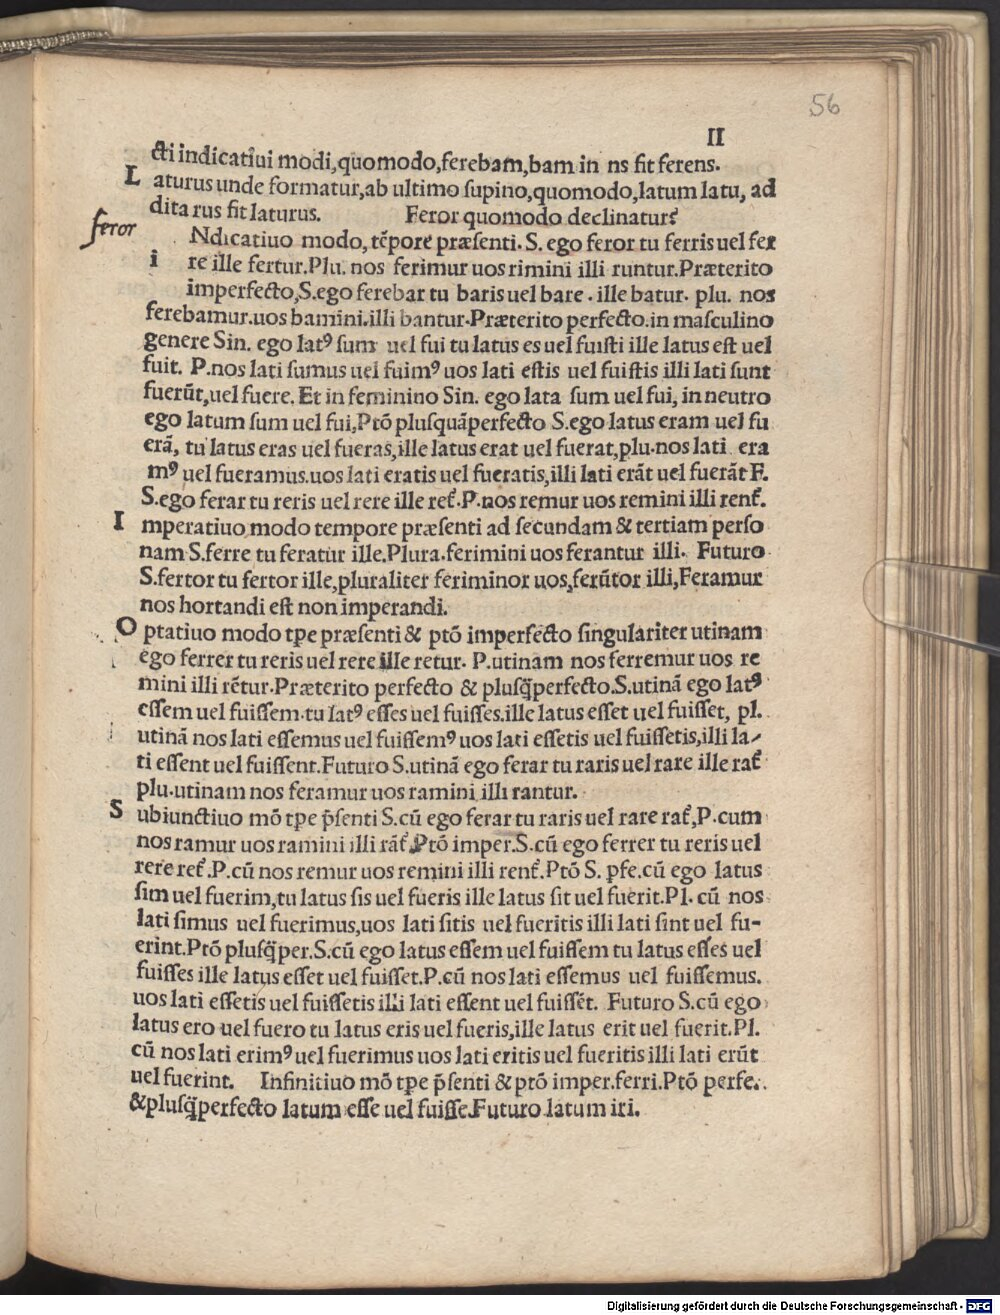 56
II
cti indicatiui modi,quomodo,ferebam,bam in ns fit ferens.
L aturus unde formatur,ab ultimo supino,quomodo,latum latu, ad
dita rus fit laturus. Feror quomodo declinatur?
feror
Ndicatiuo modo, tẽpore præsenti. S. ego feror tu ferris uel fer
i re ille fertur.Plu. nos ferimur uos rimini illi runtur.Præterito
imperfecto,S.ego ferebar tu baris uel bare . ille batur. plu. nos
ferebamur.uos bamini.illi bantur.Præterito perfecto.in masculino
genere Sin. ego latꝰ sum uel fui tu latus es uel fuisti ille latus est uel
fuit. P.nos lati sumus uel fuimꝰ uos lati estis uel fuistis illi lati sunt
fuerũt,uel fuere. Et in feminino Sin. ego lata sum uel fui, in neutro
ego latum sum uel fui,Ptõ plusquãperfecto S.ego latus eram uel fu
erã, tu latus eras uel fueras,ille latus erat uel fuerat,plu.nos lati era
mꝰ uel fueramus.uos lati eratis uel fueratis,illi lati erãt uel fuerãt F.
S.ego ferar tu reris uel rere ille ret̃.P.nos remur uos remini illi rent̃.
I mperatiuo modo tempore præsenti ad secundam & tertiam perso
nam S.ferre tu feratur ille.Plura.ferimini uos ferantur illi. Futuro
S.fertor tu fertor ille,pluraliter feriminor uos,ferũtor illi,Feramur
nos hortandi est non imperandi.
O ptatiuo modo tpe præsenti & ptõ imperfecto singulariter utinam
ego ferrer tu reris uel rere ille retur. P.utinam nos ferremur uos re
mini illi rẽtur.Præterito perfecto & plusq̃perfecto.S.utinã ego latꝰ
essem uel fuissem.tu latꝰ esses uel fuisses.ille latus esset uel fuisset, pl.
utinã nos lati essemus uel fuissemꝰ uos lati essetis uel fuissetis,illi la⸗
ti essent uel fuissent.Futuro S.utinã ego ferar tu raris uel rare ille rat̃
plu.utinam nos feramur uos ramini illi rantur.
S ubiunctiuo mõ tpe p̃senti S.cũ ego ferar tu raris uel rare rat̃,P.cum
nos ramur uos ramini illi rãt̃.Ptõ imper.S.cũ ego ferrer tu reris uel
rere ret̃.P.cũ nos remur uos remini illi rent̃.Ptõ S. pfe.cũ ego latus
sim uel fuerim,tu latus sis uel fueris ille latus sit uel fuerit.Pl. cũ nos
lati simus uel fuerimus,uos lati sitis uel fueritis illi lati sint uel fu-
erint.Ptõ plusq̃per.S.cũ ego latus essem uel fuissem tu latus esses uel
fuisses ille latus esset uel fuisset.P.cũ nos lati essemus uel fuissemus.
uos lati essetis uel fuissetis illi lati essent uel fuissẽt. Futuro S.cũ ego
latus ero uel fuero tu latus eris uel fueris,ille latus erit uel fuerit.Pl.
cũ nos lati erimꝰ uel fuerimus uos lati eritis uel fueritis illi lati erũt
uel fuerint. Infinitiuo mõ tpe p̃senti & ptõ imper.ferri.Ptõ perfe.
&plusq̃perfecto latum esse uel fuisse.Futuro latum iri.
Digitalisierung gefördert durch die Deutsche Forschungsgemeinschaft - DFG